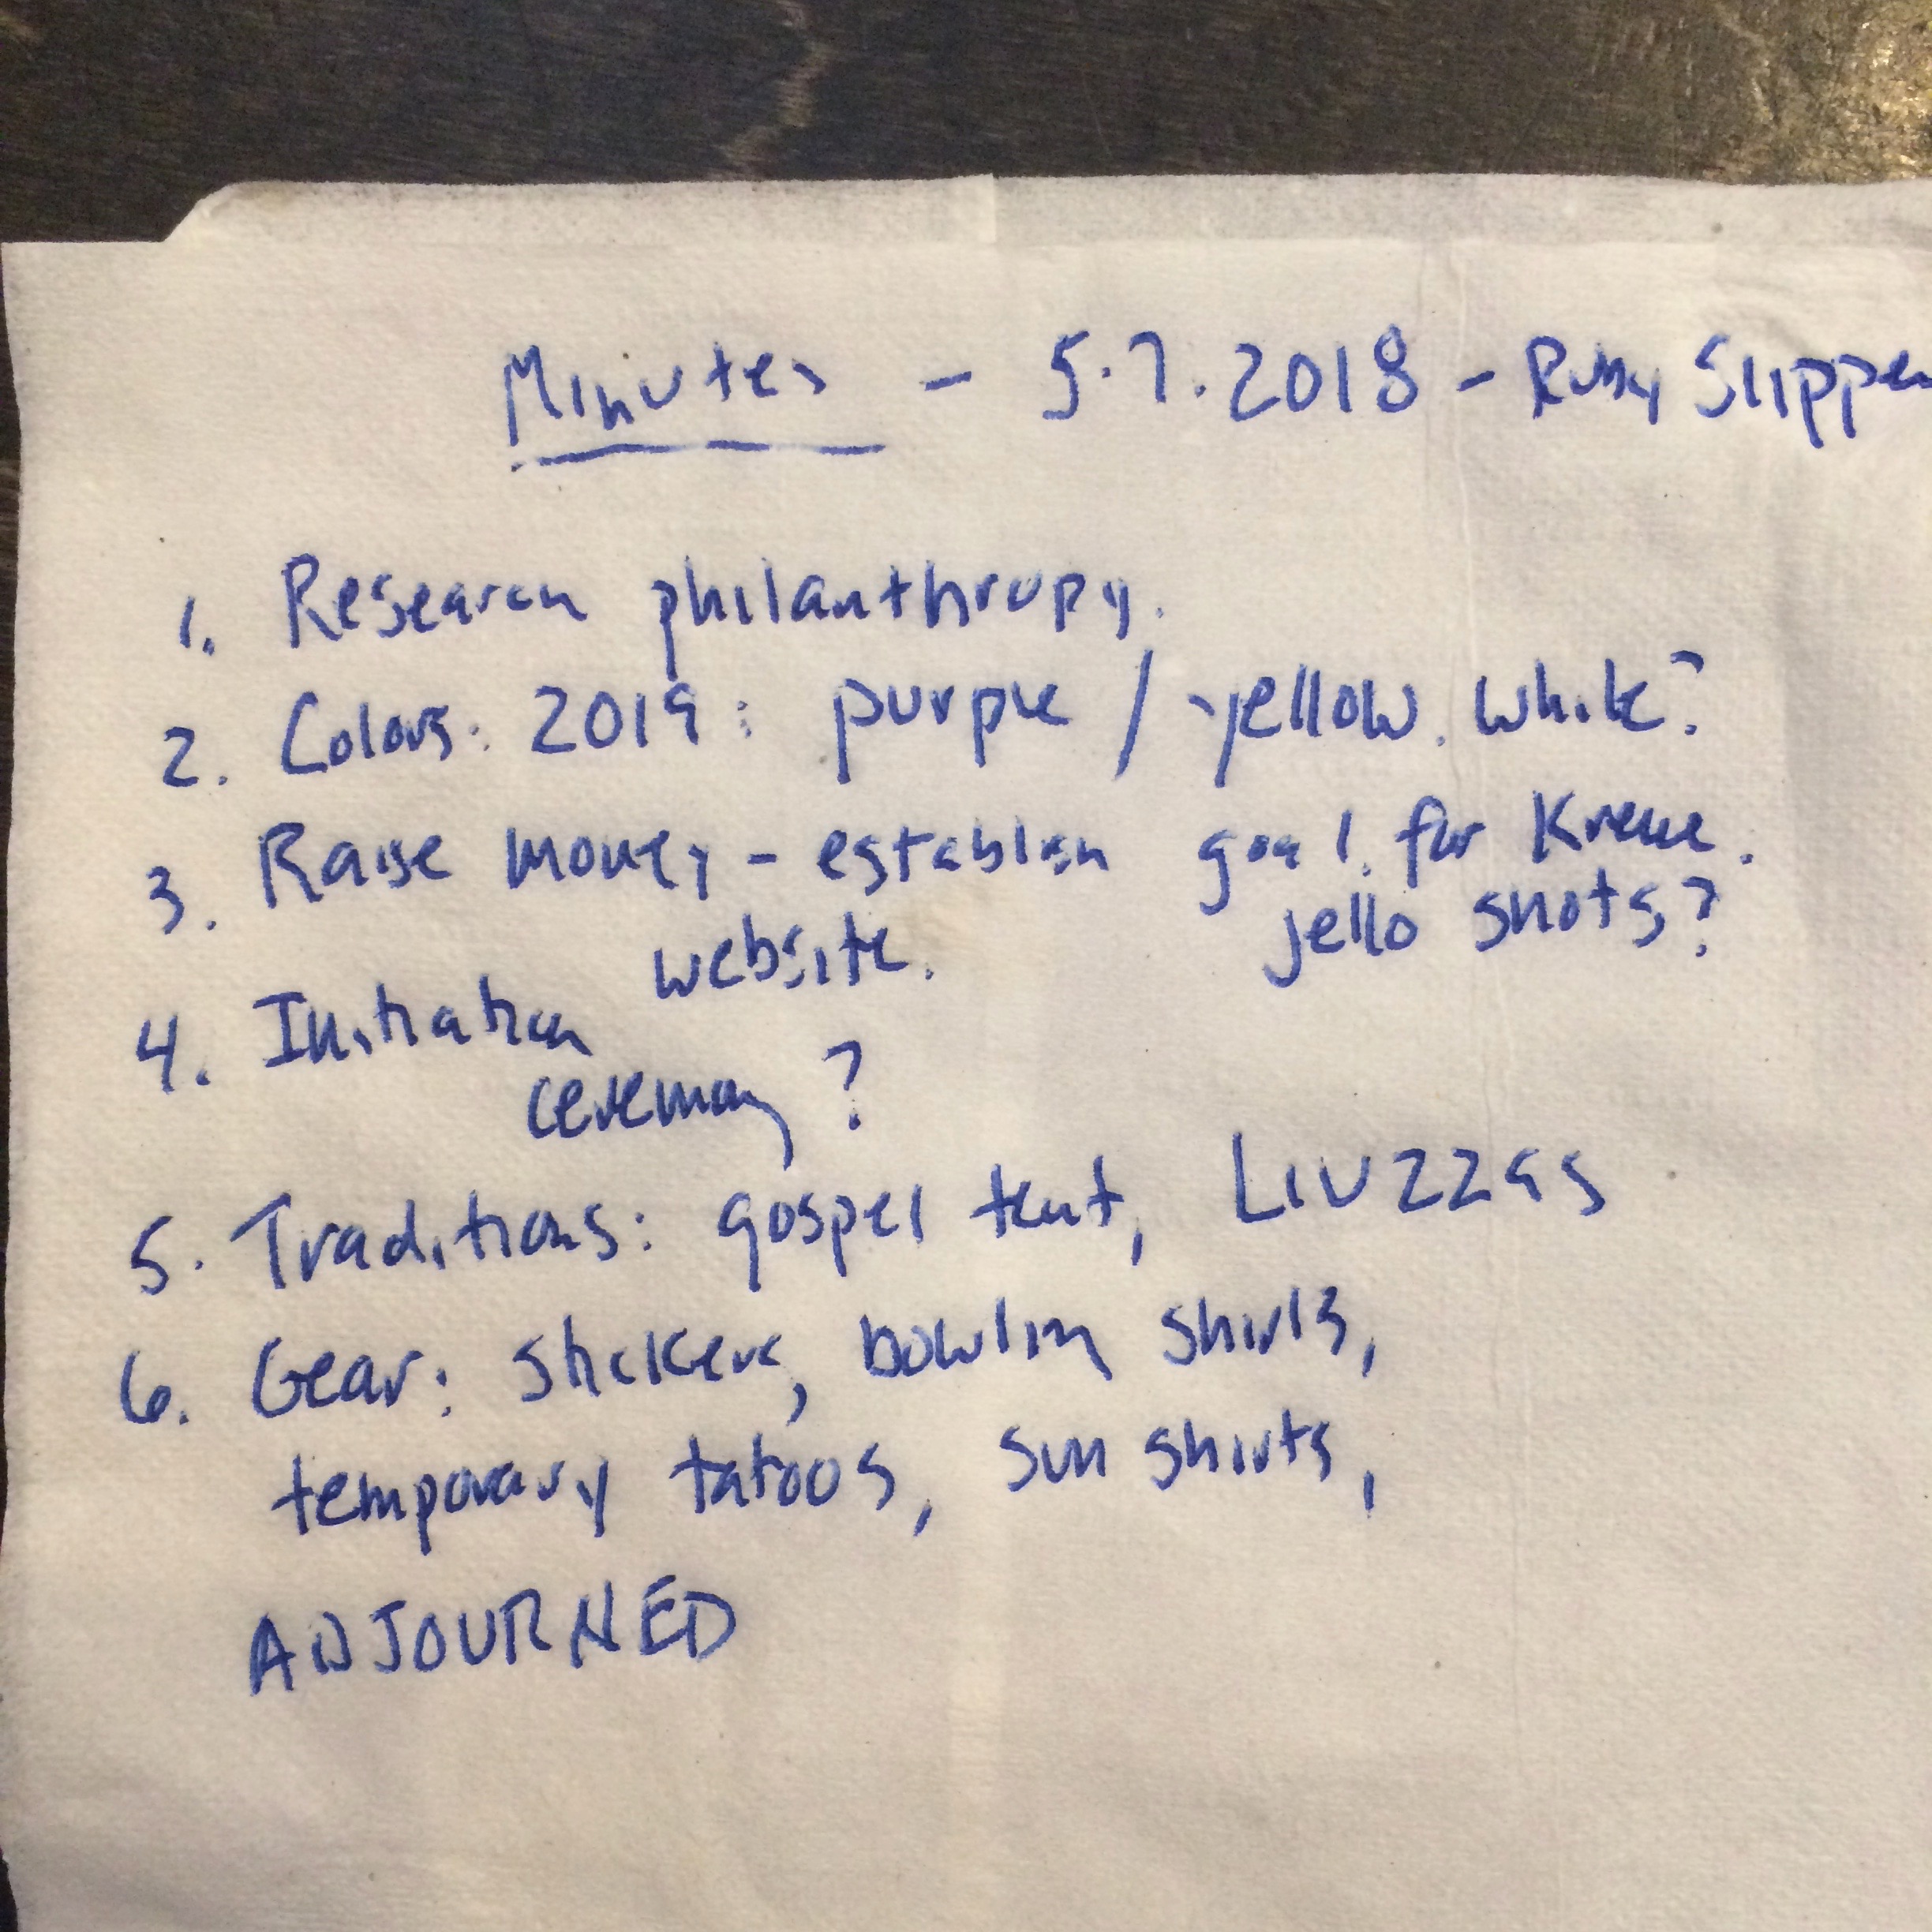 Minutes - 5.7.2018 - Ruby Slipper
1. Research philanthropy.
2. Colors: 2019: purple / yellow. white?
3. Raise money - establish goal. for Krewe.
website. jello shots?
4. Initiation
ceremony?
5. Traditions: gospel tent, LIUZZAS
6. Gear: stickers, bowling shirts,
temporary tatoos, sun shirts,
ADJOURNED